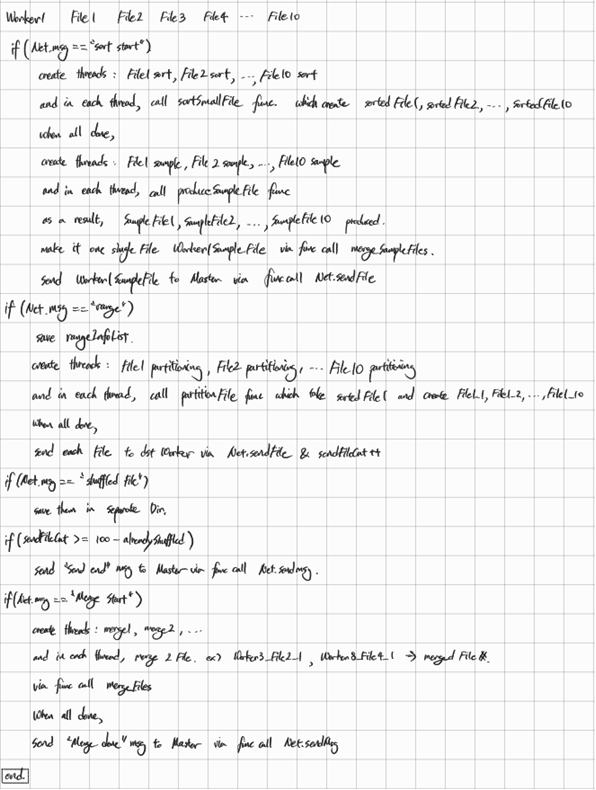 Worker1 File1 File2 File3 File4 ... File10
if (Net.msg == "sort start")
create threads : File1 sort, File2 sort, ..., File10 sort
and in each thread, call sortSmallFile func. which create sorted File1, sorted File2, ..., Sorted File10
when all done,
create threads : File1 sample, File2 sample, ..., File10 sample
and in each thread, call produceSampleFile func
as a result, SampleFile1, SampleFile2, ..., SampleFile10 produced.
make it one single File Worker1SampleFile via func call mergeSampleFiles.
send Worker1SampleFile to Master via func call Net.sendFile
if (Net.msg == "range")
save rangeInfoList.
create threads : File1 partitioning, File2 partitioning, ... File10 partitioning
and in each thread, call partitionFile func which take sorted File1 and create File1_1, File1_2, ..., File1_10
when all done,
send each File to dst Worker via Net.sendFile & sendFileCnt++
if (Net.msg == "shuffled file")
save them in separate Dir.
if (sendFileCnt >= 100 - alreadyShuffled)
send "Send end" msg to Master via func call Net.sendMsg.
if (Net.msg == "Merge Start")
create threads : merge1, merge2, ...
and in each thread, merge 2 File. ex) Worker3_File2_1, Worker8_File4_1 → merged File#.
via func call mergeFiles
when all done,
send "Merge done" msg to Master via func call Net.sendMsg
end.